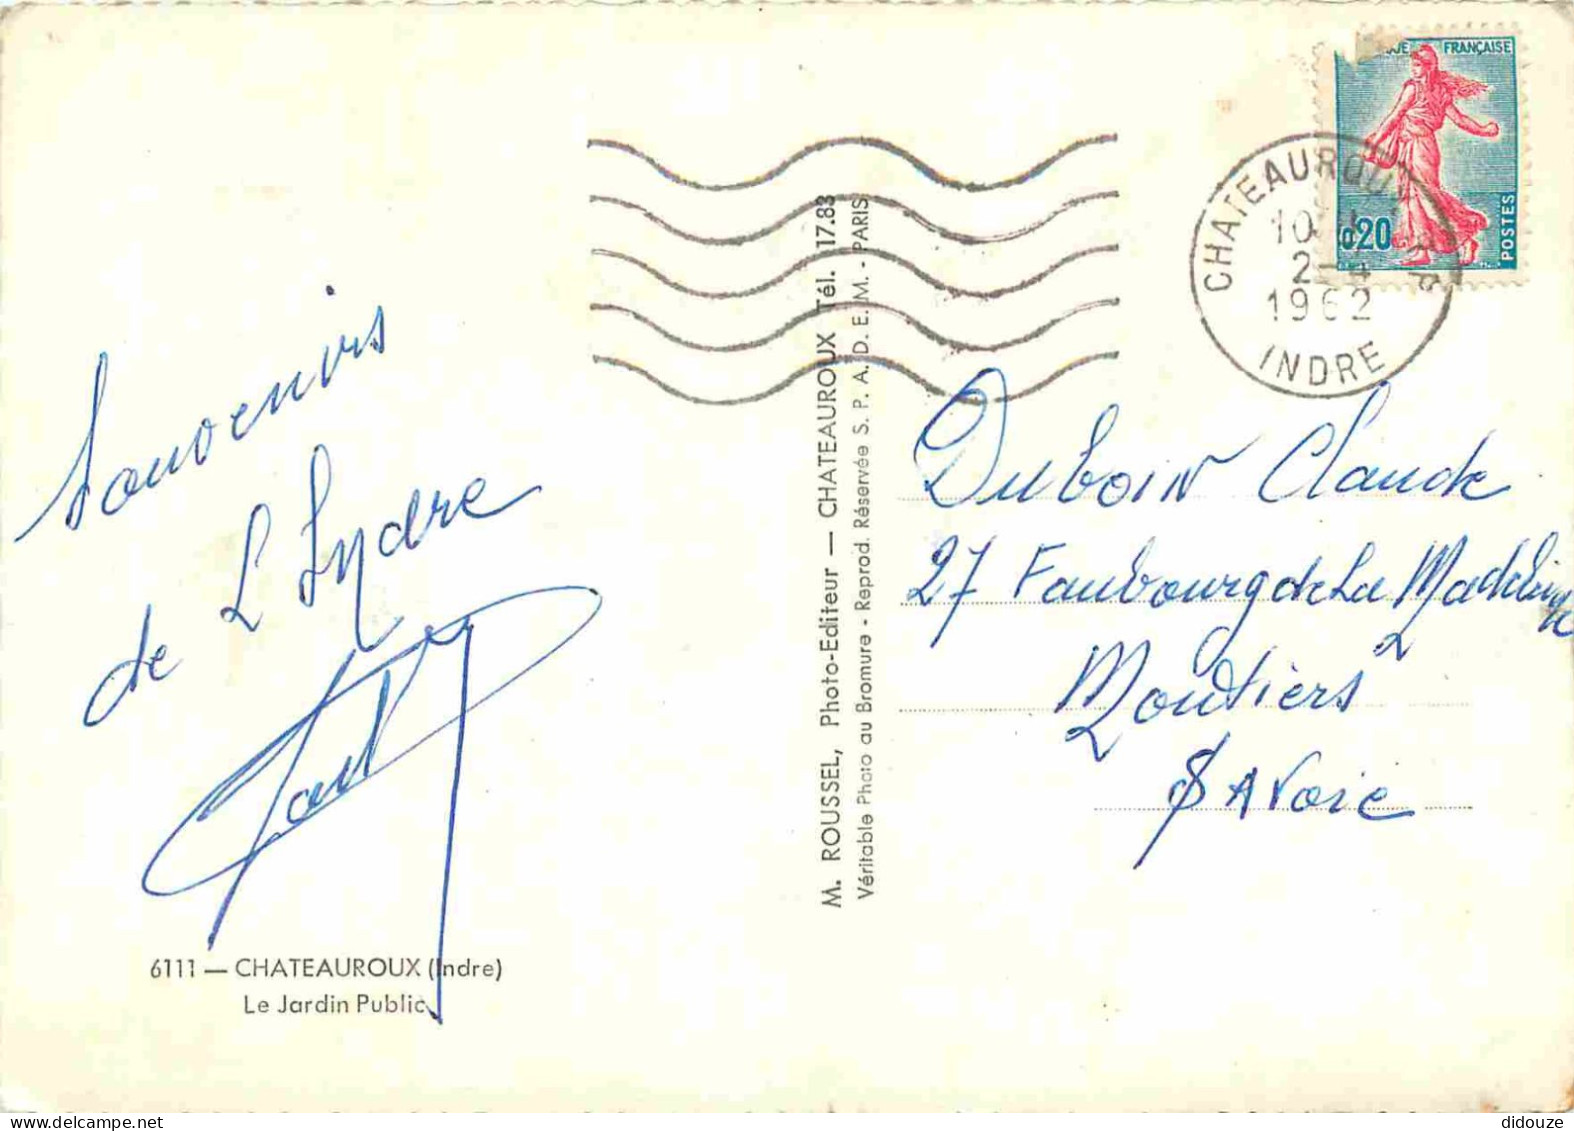 Souvenirs
de L'Indre
6111 — CHATEAUROUX (Indre)
Le Jardin Public
M. ROUSSEL, Photo-Editeur — CHATEAUROUX Tél. 17.83
Véritable Photo au Bromure - Reprod. Réservée S. P. A. D. E. M. - PARIS
FRANÇAISE
0,20
POSTES
CHATEAUROUX
10 H
2-4
1962
INDRE
Duboin Claude
27 Faubourg de La Madeleine
Moutiers
SAVoie
didouze